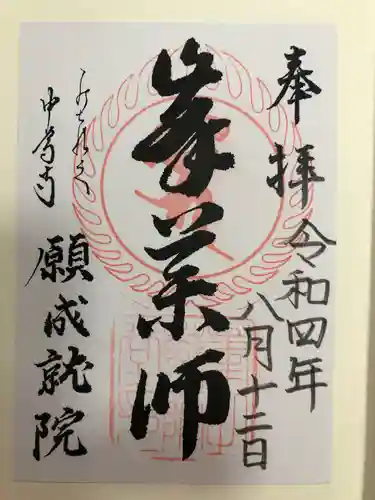 奉拝
令和四年
八月十二日
峯薬師
中道寺
願成就院